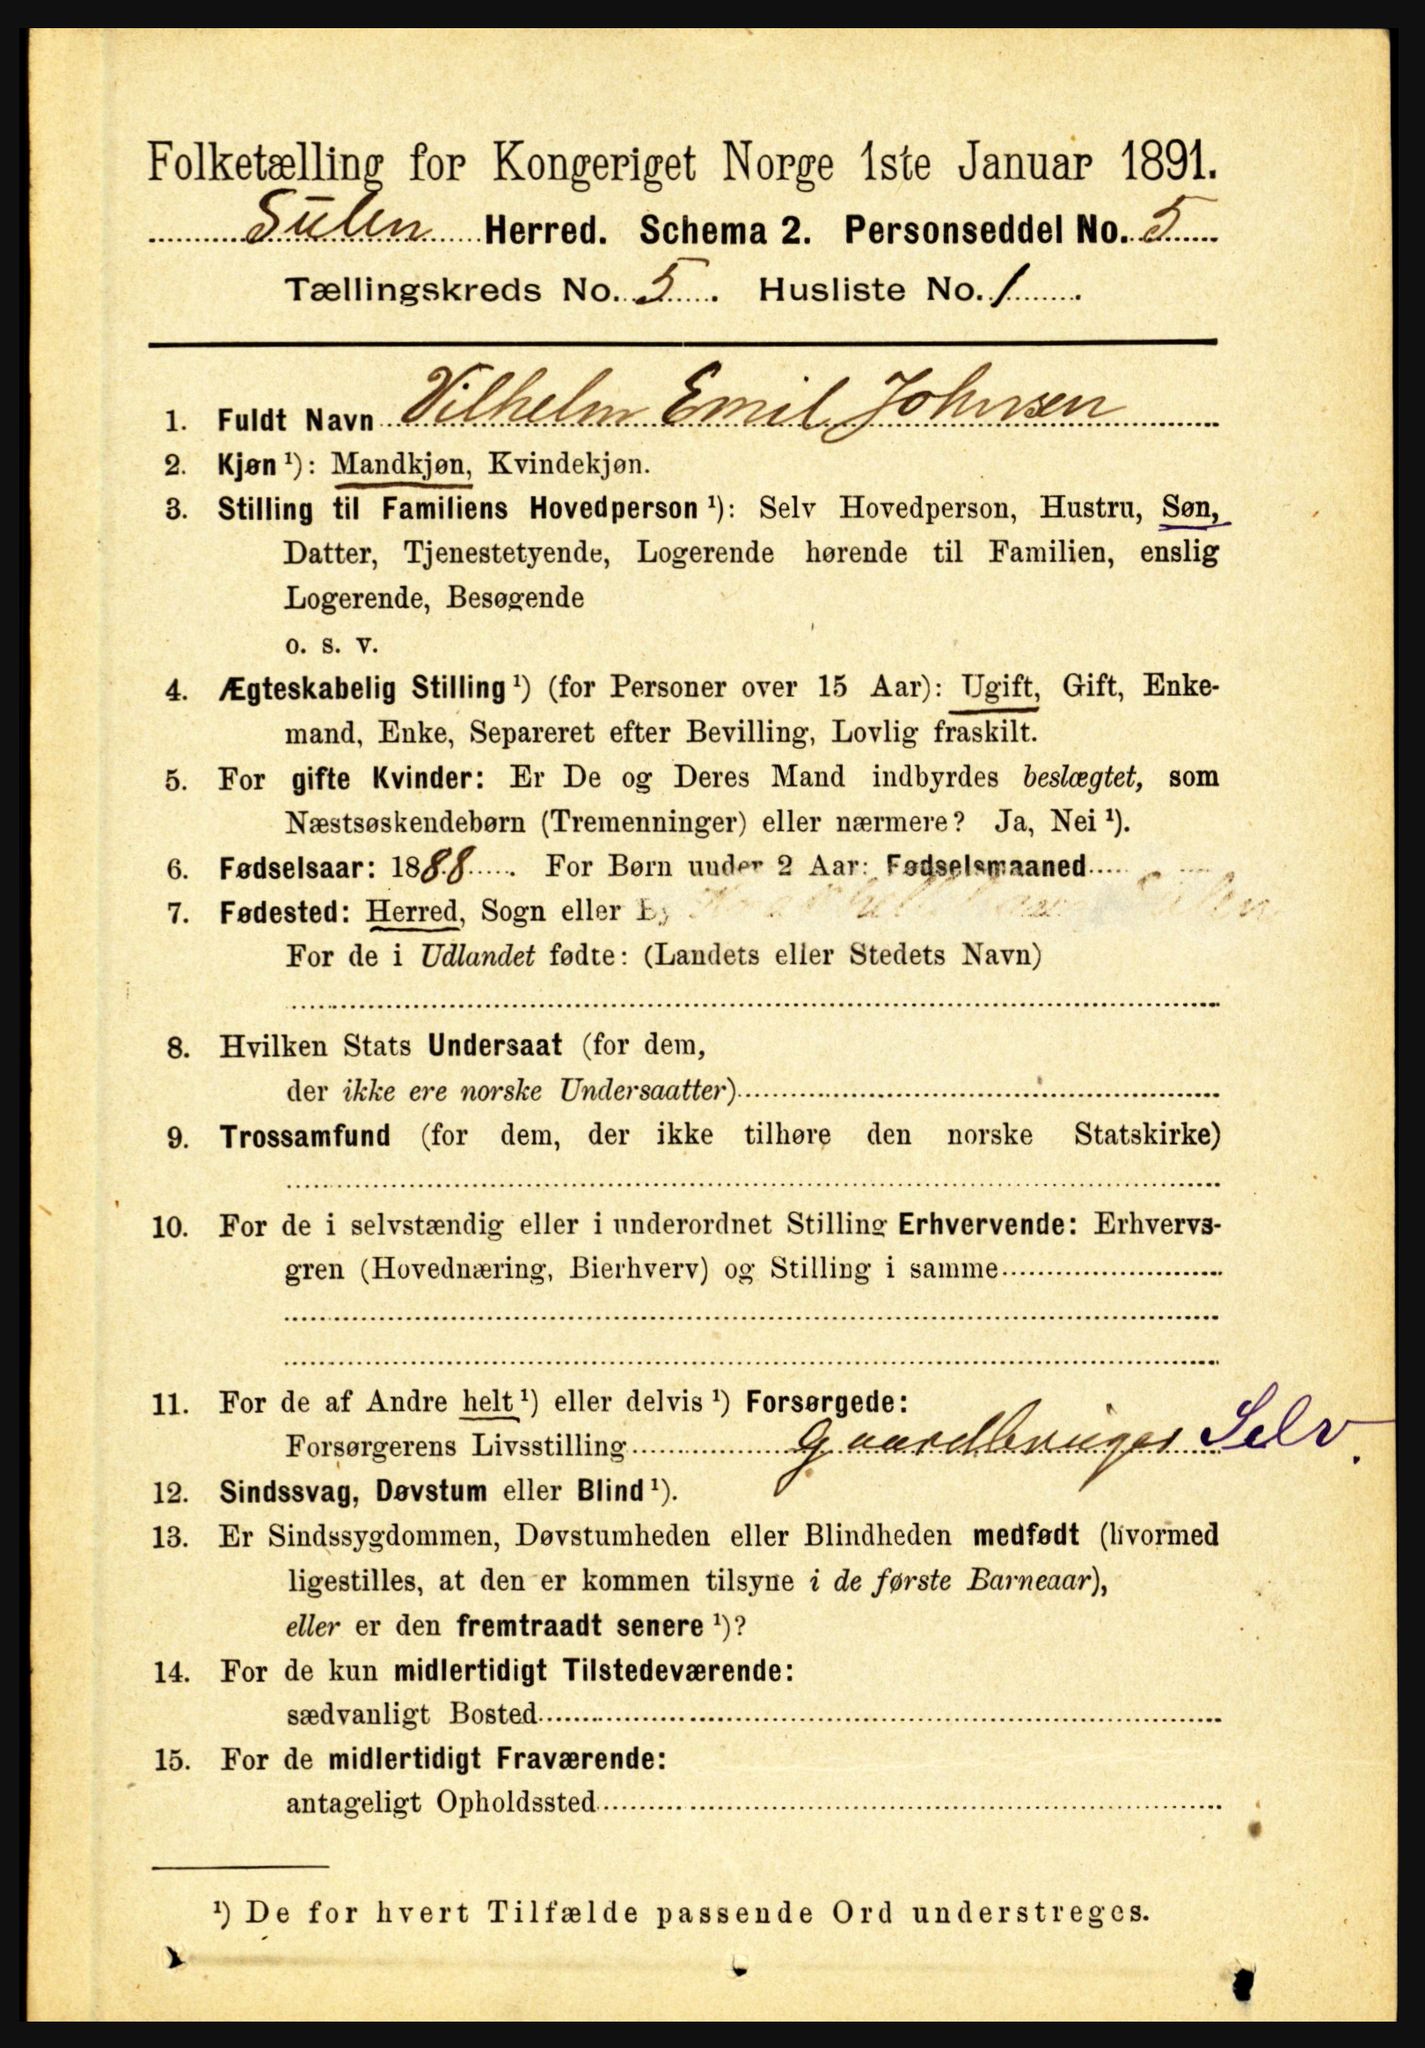 Folketælling for Kongeriget Norge 1ste Januar 1891.
Sulen Herred. Schema 2. Personseddel No. 5
Tællingskreds No. 5. Husliste No. 1.
1. Fuldt Navn Vilhelm Emil Johnsen
2. Kjøn ¹): Mandkjøn, Kvindekjøn.
3. Stilling til Familiens Hovedperson ¹): Selv Hovedperson, Hustru, Søn,
Datter, Tjenestetyende, Logerende hørende til Familien, enslig
Logerende, Besøgende
o. s. v.
4. Ægteskabelig Stilling ¹) (for Personer over 15 Aar): Ugift, Gift, Enke-
mand, Enke, Separeret efter Bevilling, Lovlig fraskilt.
5. For gifte Kvinder: Er De og Deres Mand indbyrdes beslægtet, som
Næstsøskendebørn (Tremenninger) eller nærmere? Ja, Nei ¹).
6. Fødselsaar: 1888. For Børn under 2 Aar: Fødselsmaaned
7. Fødested: Herred, Sogn eller By
For de i Udlandet fødte: (Landets eller Stedets Navn)
8. Hvilken Stats Undersaat (for dem,
der ikke ere norske Undersaatter)
9. Trossamfund (for dem, der ikke tilhøre den norske Statskirke)
10. For de i selvstændig eller i underordnet Stilling Erhvervende: Erhvervs-
gren (Hovednæring, Bierhverv) og Stilling i samme
11. For de af Andre helt ¹) eller delvis ¹) Forsørgede:
Forsørgerens Livsstilling Gaardbruger Selv.
12. Sindssvag, Døvstum eller Blind ¹).
13. Er Sindssygdommen, Døvstumheden eller Blindheden medfødt (hvormed
ligestilles, at den er kommen tilsyne i de første Barneaar),
eller er den fremtraadt senere ¹)?
14. For de kun midlertidigt Tilstedeværende:
sædvanligt Bosted
15. For de midlertidigt Fraværende:
antageligt Opholdssted
¹) De for hvert Tilfælde passende Ord understreges.